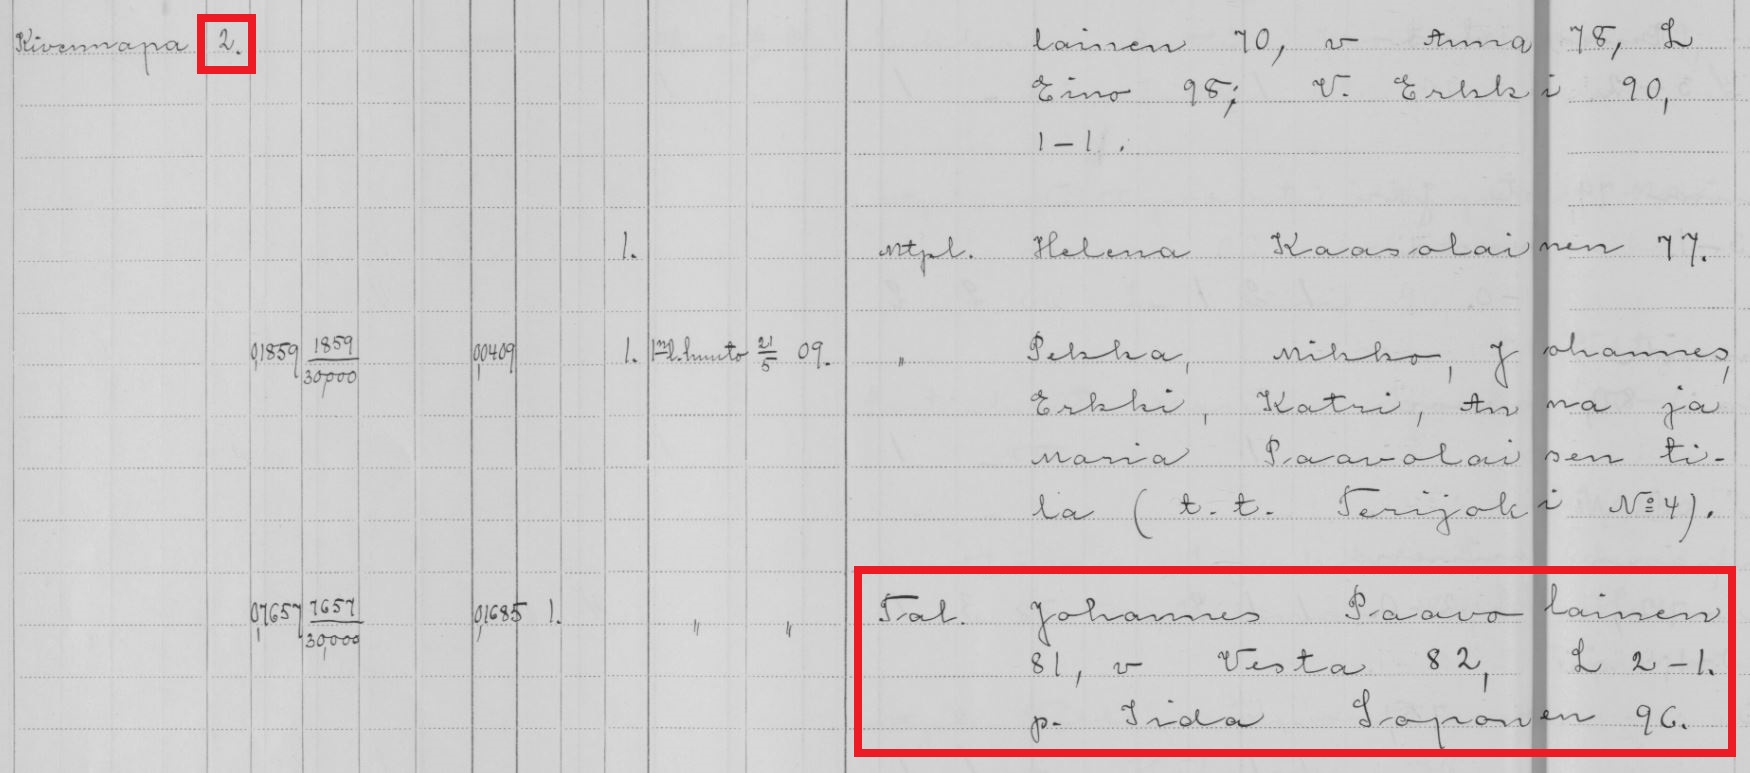 Kivennapa 2. lainen 70, v Anna 78, L
Eino 98; V. Erkki 90,
1-1.
1. Mtpl. Helena Kaasolainen 77.
0,1859 1859/30,000 0,0409 1. 1 m.l. huuto 21/5 09. " Pekka, Mikko, Johannes,
Erkki, Katri, Anna ja
Maria Paavolaisen ti-
la (t.t. Terijoki №4).
0,7657 7657/30,000 0,1685 1. " " Tal. Johannes Paavolainen
81, v Vesta 82, L 2-1.
p. Iida Loponen 96.